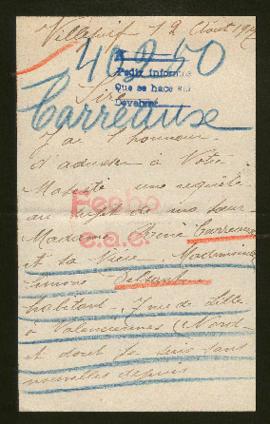 Villejuif 12 Août 19
40950
Pedir informe
Que se hace en
Devebres
Sire
Carreause
J'ai l'honneur
d'adresser à Votre
Majesté une requête
au sujet de ma sœur
Fecho
Madame Irénée Carreause
e.a.c.
et sa nièce Mademoiselle
Simone
habitant rue de Lille
à Valenciennes (Nord)
et dont je suis sans
nouvelles depuis